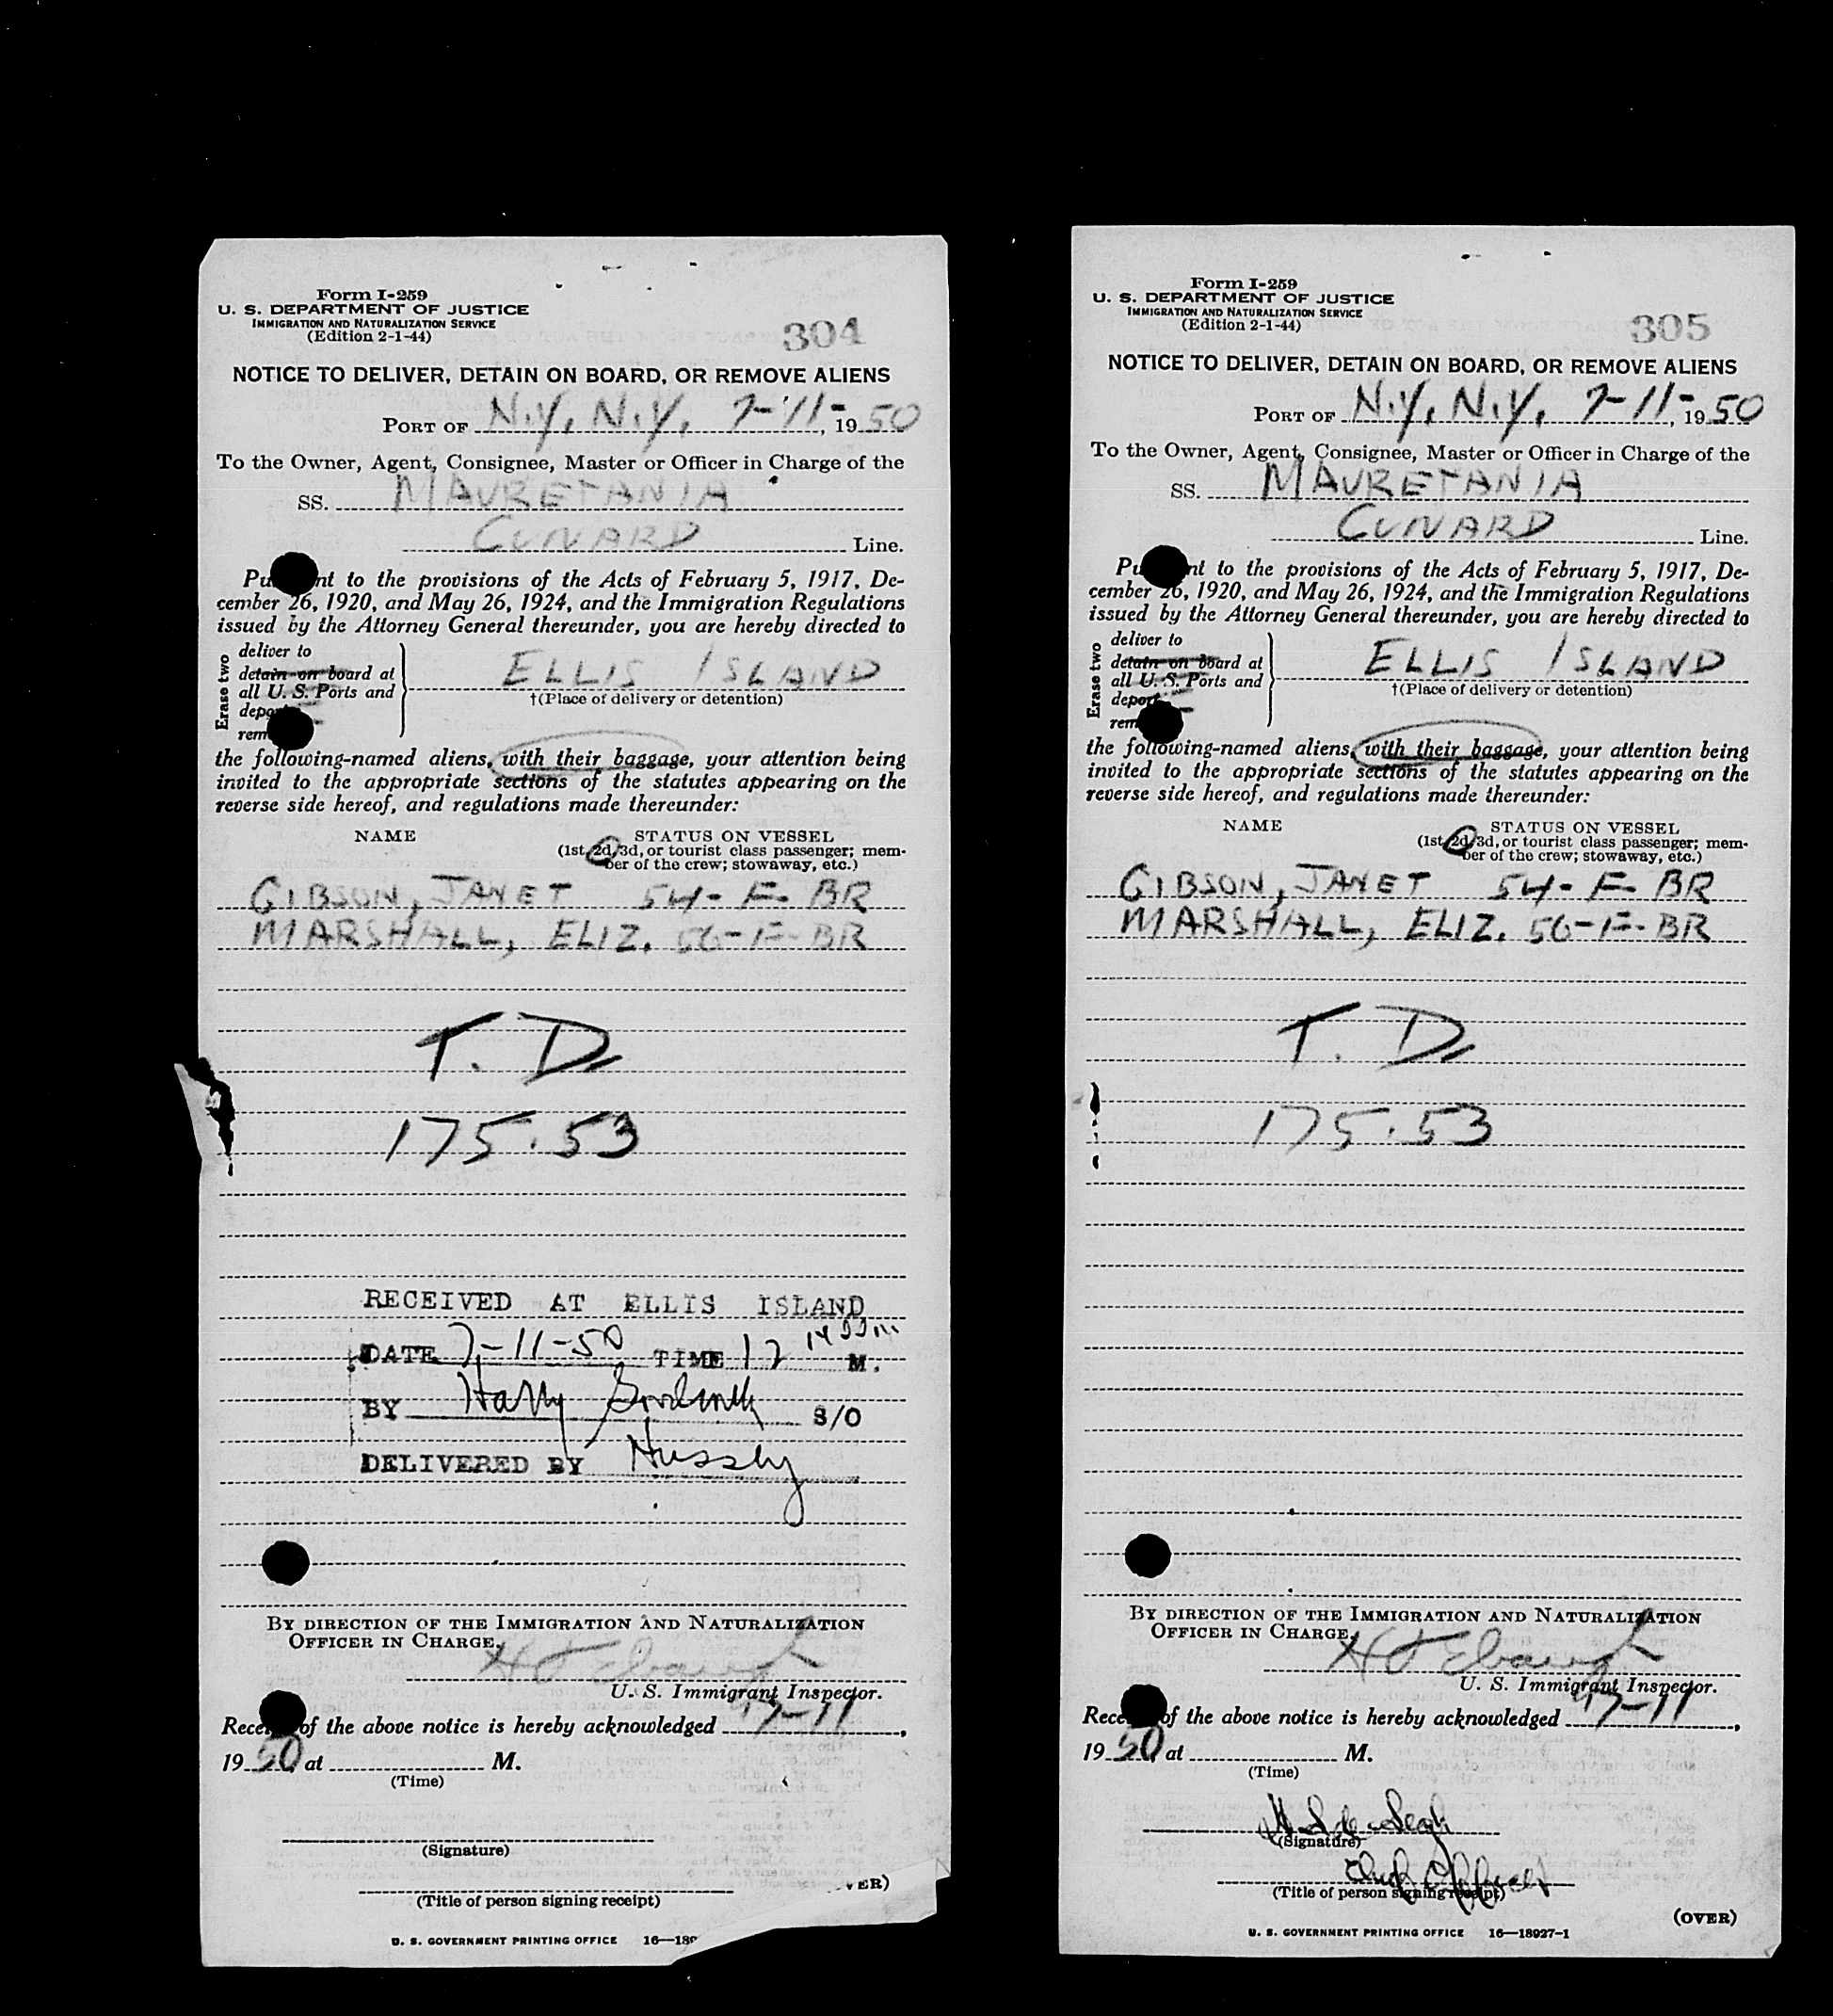 Form I-259
U. S. DEPARTMENT OF JUSTICE
IMMIGRATION AND NATURALIZATION SERVICE
(Edition 2-1-44)
304
NOTICE TO DELIVER, DETAIN ON BOARD, OR REMOVE ALIENS
PORT OF N.Y, N.Y. 7-11-, 1950
To the Owner, Agent, Consignee, Master or Officer in Charge of the
SS. MAURETANIA
CUNARD Line.
Pu nt to the provisions of the Acts of February 5, 1917, De-
cember 26, 1920, and May 26, 1924, and the Immigration Regulations
issued by the Attorney General thereunder, you are hereby directed to
Erase two
deliver to
detain on board at
all U. S. Ports and
depo
rem
ELLIS ISLAND
†(Place of delivery or detention)
the following-named aliens, with their baggage, your attention being
invited to the appropriate sections of the statutes appearing on the
reverse side hereof, and regulations made thereunder:
NAME
STATUS ON VESSEL
(1st, 2d, 3d, or tourist class passenger; mem-
ber of the crew; stowaway, etc.)
GIBSON, JANET 54-F-BR
MARSHALL, ELIZ. 56-F-BR
T. D
175.53
RECEIVED AT ELLIS ISLAND
DATE 7-11-50 TIME 12 M.
BY Harry S/O
DELIVERED BY Hussey
BY DIRECTION OF THE IMMIGRATION AND NATURALIZATION
OFFICER IN CHARGE.
U. S. Immigrant Inspector.
Rece of the above notice is hereby acknowledged 7-11,
1950 at M.
(Time)
(Signature)
(Title of person signing receipt)
VER)
U. S. GOVERNMENT PRINTING OFFICE 16—189
Form I-259
U. S. DEPARTMENT OF JUSTICE
IMMIGRATION AND NATURALIZATION SERVICE
(Edition 2-1-44)
305
NOTICE TO DELIVER, DETAIN ON BOARD, OR REMOVE ALIENS
PORT OF N.Y, N.Y. 7-11-, 1950
To the Owner, Agent, Consignee, Master or Officer in Charge of the
SS. MAURETANIA
CUNARD Line.
Pu nt to the provisions of the Acts of February 5, 1917, De-
cember 26, 1920, and May 26, 1924, and the Immigration Regulations
issued by the Attorney General thereunder, you are hereby directed to
Erase two
deliver to
detain on board at
all U. S. Ports and
depor
rem
ELLIS ISLAND
†(Place of delivery or detention)
the following-named aliens, with their baggage, your attention being
invited to the appropriate sections of the statutes appearing on the
reverse side hereof, and regulations made thereunder:
NAME
STATUS ON VESSEL
(1st, 2d, 3d, or tourist class passenger; mem-
ber of the crew; stowaway, etc.)
GIBSON, JANET 54-F-BR
MARSHALL, ELIZ. 56-F-BR
T. D
175.53
BY DIRECTION OF THE IMMIGRATION AND NATURALIZATION
OFFICER IN CHARGE.
U. S. Immigrant Inspector.
Rece of the above notice is hereby acknowledged 7-11,
1950 at M.
(Time)
(Signature)
(Title of person signing receipt)
(OVER)
U. S. GOVERNMENT PRINTING OFFICE 16—18927-1